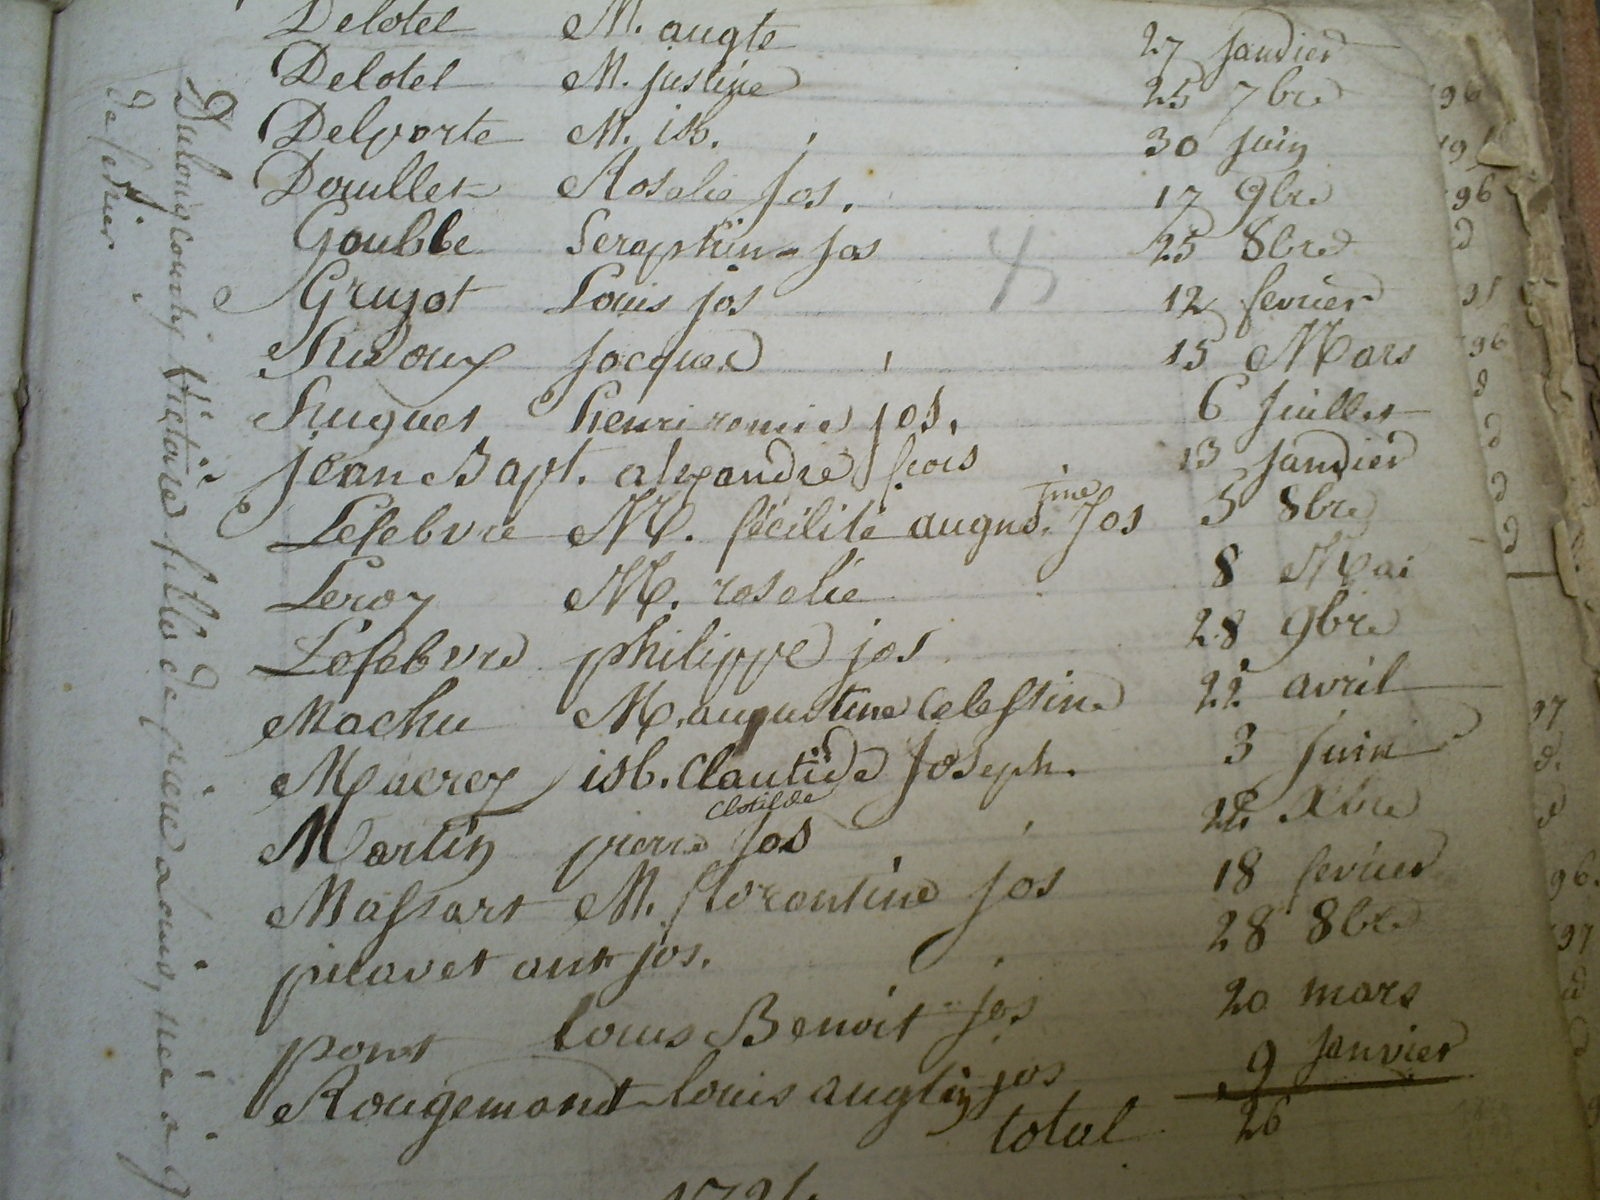 Delotel M. augte 27 janvier
Delotel M. justine 25 7bre 96
Delporte M. isb. 30 juin
Douillet Rosalie Jos. 17 9bre 96
Goubbe Seraphin Jos 25 8bre d
Grujot Louis jos 12 fevrier
Hudoux Jacques 15 Mars 96
Huguet henri jos. 6 Juillet d
Jean Bapt. alexandre frois 13 Janvier d
Lefebvre M. fécilité Jos 5 8bre d
Leroy M. rosalie 8 Mai d
Lefebvre philippe jos 28 9bre
Machu M. augustine Celestine 22 avril 97
Macrez isb. Clautide Joseph. 3 Juin d.
Clotilde
Martin pierre Jos 22 Xbre d
Massart M. florentine Jos 18 fevrier 96.
picavet ant jos. 28 8bre 97
pont louis Benoit jos 20 mars d
Rougemont louis augtin jos 9 Janvier
total 26